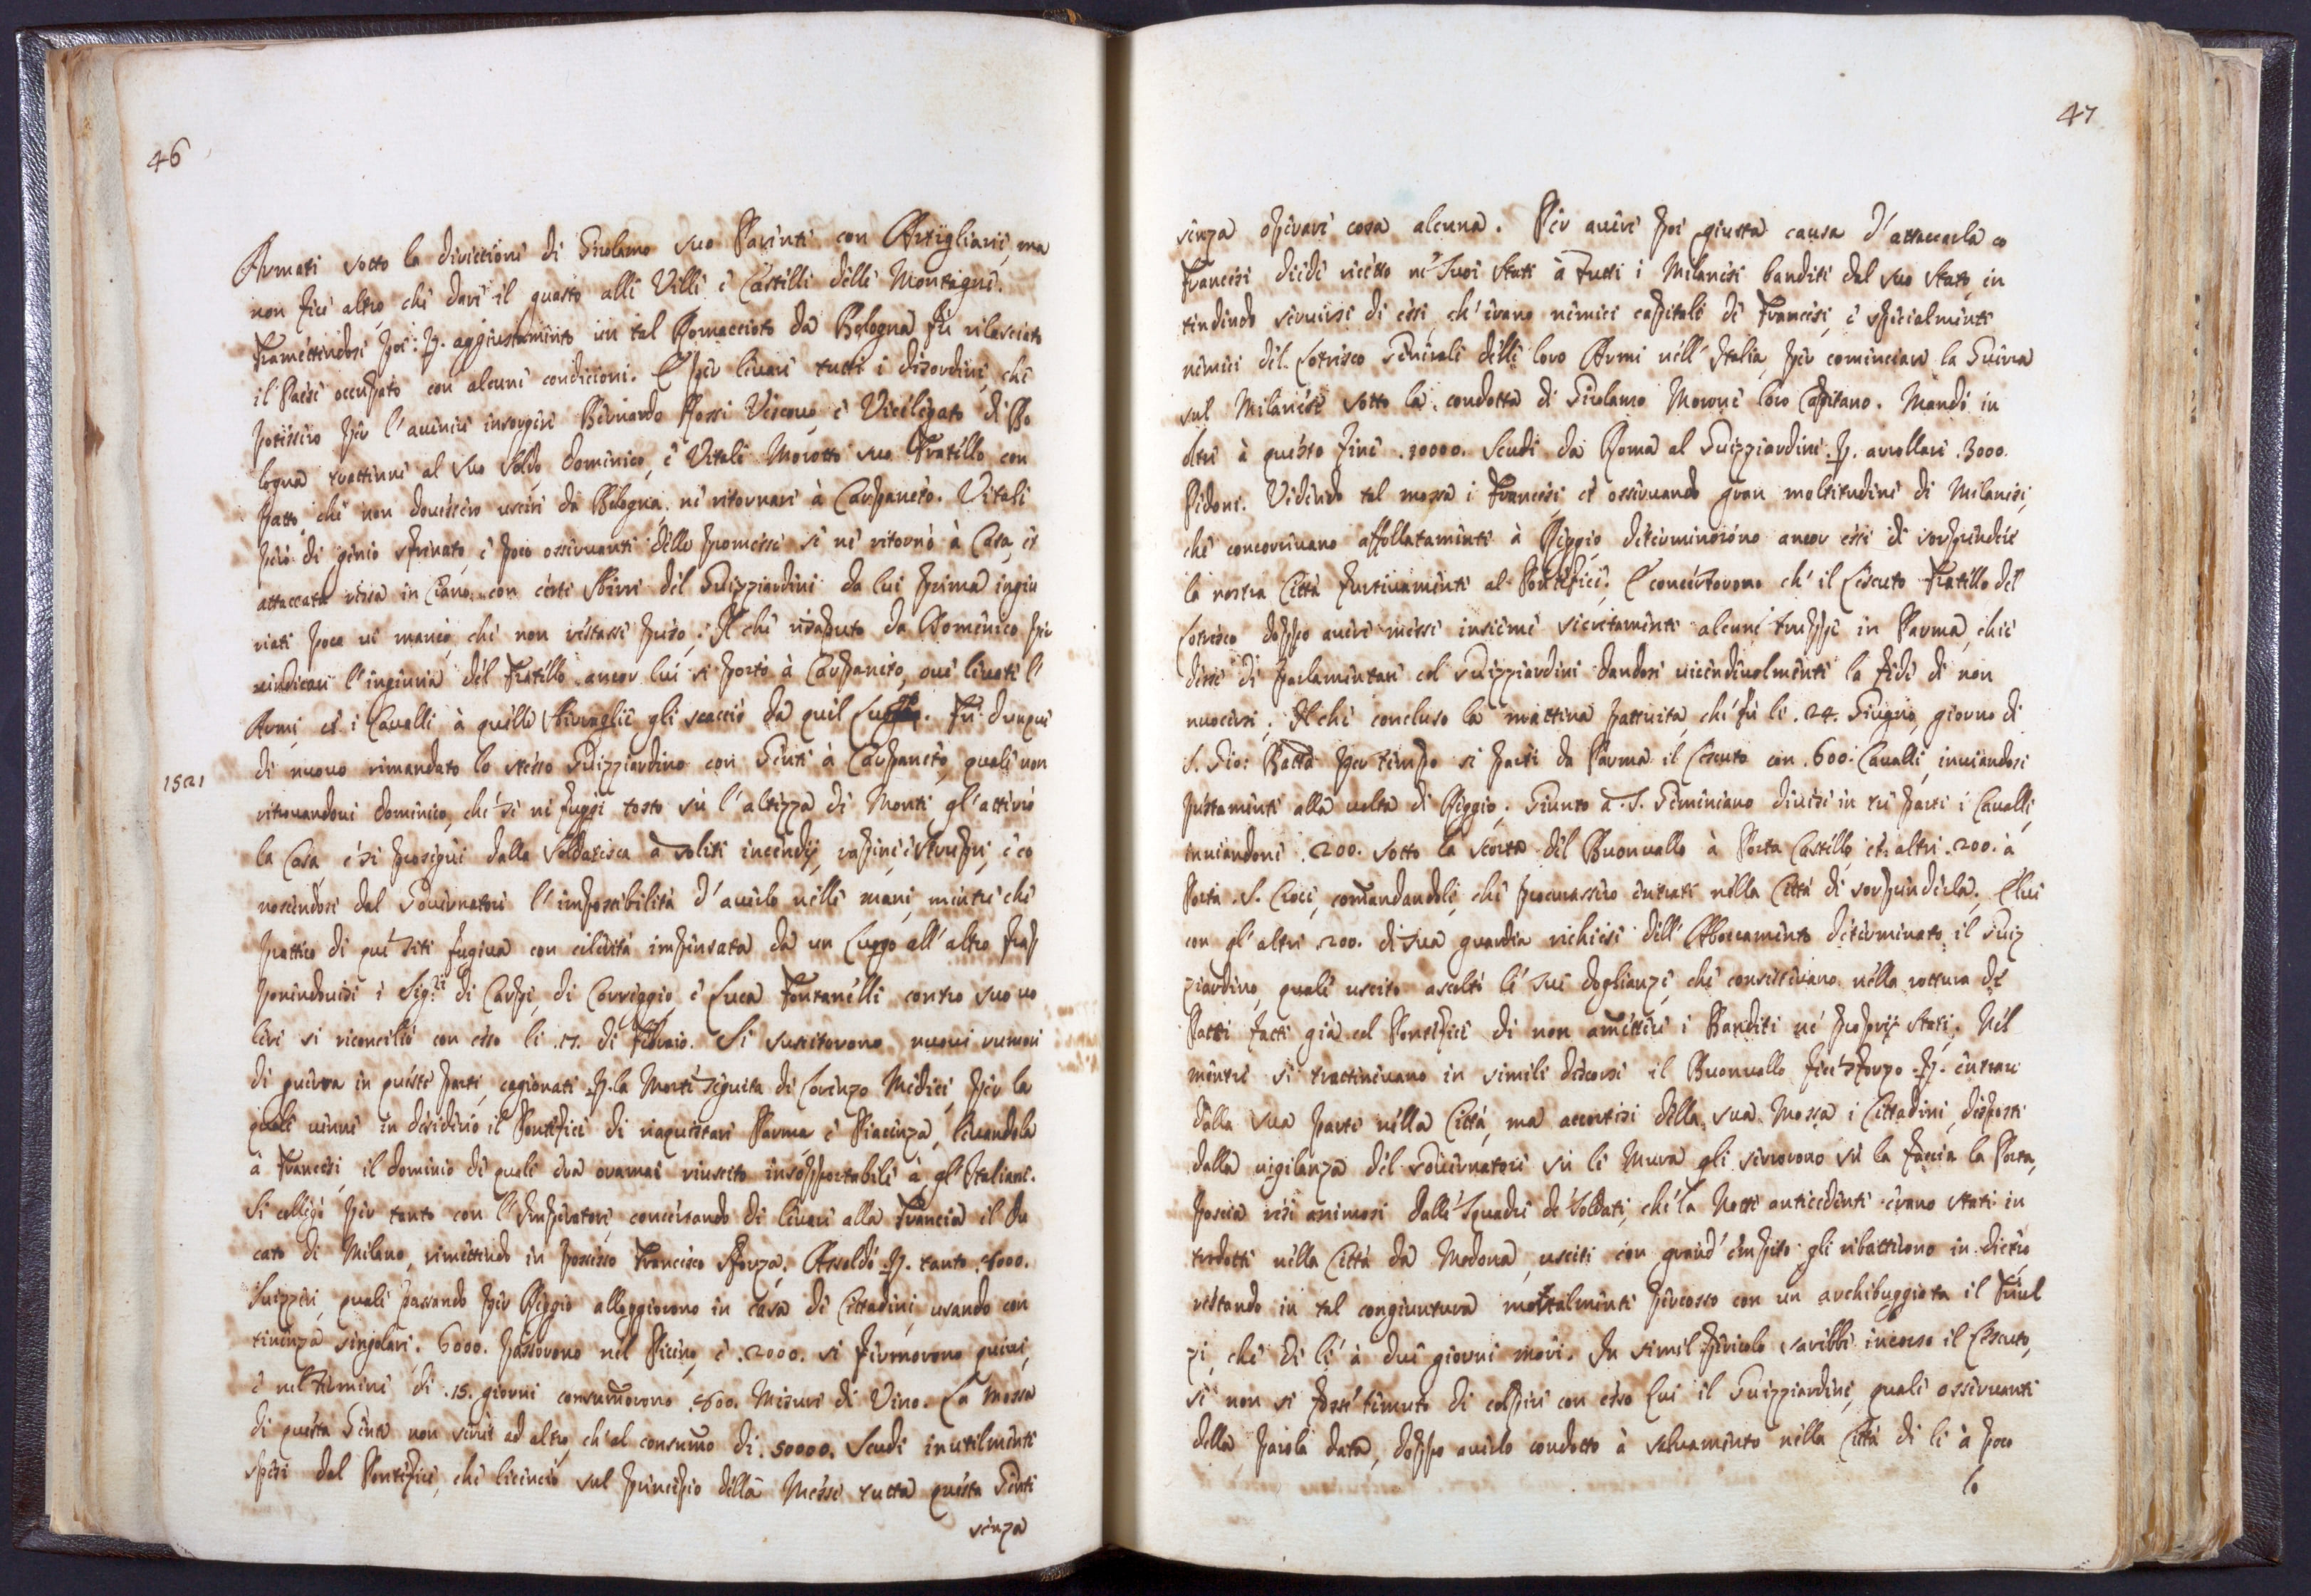 46
Armati sotto la direttione di Girolamo suo Parente con Artiglierie, ma
non fece altro, che dare il guasto alle Ville e Castelli delle Montagne.
Framettendosi poi: p. aggiustamento un tal Ramaccioto da Bologna fù rilasciato
il Paese occupato con alcune condicioni. E per levare tutti i disordini, che
potessero per l'avenire insorgere Bernardo Rossi Vescovo, e Vicelegato di Bo
logna trattenne al suo soldo Dominico, e Vitale Morotto suo Fratello con
patto che non dovessero uscire da Bologna, ne ritornare à Carpaneto. Vitale
però di genio sfrenato, e poco osservante delle promesse se ne ritornò à Casa, et
attaccata rissa in Ciano con certi Sbirri del Guizziardini da lui prima ingiu
riati poco vi mancò, che non restasse preso. Il che risaputo da Domenico per
vindicare l'ingiuria del Fratello ancor lui si portò à Carpaneto, ove levati l'
Armi, et i Cavalli à quelle Sbiraglie gli scacciò da quel Luogo. Fù dunque
1521 di nuovo rimandato lo stesso Guizziardino con Gente à Carpaneto, quale non
ritrovandovi Dominico, che si ne fuggi tosto sù l'altezza di Monti gl'atterrò
la Casa, e si proseguì dalla soldatesca a soliti incendij, rapine, e strupri, e co
noscendosi dal Governatore l'impossibilità d'averlo nelle mani, mentre che
prattico di què siti fugiva con celerità impensata da un Luogo all'altro frap
ponendovisi i Sig.ri di Carpi, di Correggio, e Luca Fontanelli contro suo vo
lere si riconciliò con esso li .17. di Febraio. Si suscitorono nuovi rumori
di guerra in queste parti, cagionati p. la Morte seguita di Lorenzo Medici, per la
quale venne in desiderio il Pontefice di riaquistare Parma, e Piacenza, levandola
à Francesi, il dominio de quali era oramai riuscito insopportabile à gl'Italiani.
Si collegò per tanto con l'Imperatore, concertando di levare alla Francia il Du
cato di Milano, rimettendo in possesso Francesco Sforza. Assoldò p. tanto .8000.
Suizzeri, quali passando per Reggio alloggiorono in casa di Cittadini, usando con
tinenza singolare. 6000. passorono nel Piceno, e .2000. si fermorono quivi,
e nel termine di .15. giorni consumorono .800. Misure di Vino. La Mossa
di questa Gente non servì ad altro, ch'al consumo di .50000. Scudi inutilmente
spesi dal Pontefice, che licenciò sul principio della Messe tutta questa Gente
senza
47
senza operare cosa alcuna. Per avere poi giusta causa d'attaccarla co
Francesi diede ricetto ne' suoi Stati à Tutti i Milanesi banditi dal suo Stato, in
tendendo servirsi di essi, ch'erano nemici capitali de Francesi, e specialmente
nemici del Lotrecco Generale delle loro Armi nell'Italia, per cominciare la Guerra
sul Milanese sotto la condotta di Girolamo Morone loro Capitano. Mandò in
oltre à questo fine .10000. Scudi da Roma al Guizziardini p. arrollare .3000.
Pedoni. Vedendo tal mossa i Francesi, et osservando gran moltitudine di Milanesi,
che concorrevano affollatamente à Reggio, determinorono ancor essi di sorprendere
la nostra Città furtivamente al Pontefice. E concertorono ch'il Lescuto Fratello del
Lotrecco doppo avere messe insieme secretamente alcune truppe in Parma, chie
desse di parlamentare col Guizziardini dandosi vicendevolmente la fede di non
nuocersi. Il che concluso la mattina pattuita, che fù li .24. Giugno, giorno di
S. Gio: Batta per tempo si partì da Parma il Lescuto con .600. Cavalli, inviandosi
prestamente alla volta di Reggio. Giunto a S. Geminiano divise in tre parti i Cavalli,
inviandone .200. sotto la scorta del Buonvallo à Porta Castello, et altri .200. à
Porta S. Croce, comandandoli, che procurassero entrati nella Città di sorprenderla. E lui
con gl'altri .200. di sua guardia richiese dell'Abboccamento determinato il Guiz
ziardino, quale uscito ascoltò le sue doglianze, che consistevano nella rottura de
Patti fatti già col Pontefice di non amettere i Banditi ne proprij stati. Nel
mentre si trattenevano in simili discorsi il Buonvallo fece sforzo p. entrare
dalla sua parte nella Città, ma accortisi della sua Mossa i Cittadini, disposti
dalla vigilanza del Governatore sù le Mura gli serrorono sù la faccia la Porta,
poscia resi animosi dalle squadre de Soldati, che la Notte antecedente erano stati in
trodotti nella Città da Modona, usciti con grand'empito gli ribatterono in dietro
restando in tal congiuntura mortalmente percosso con un archibuggiata il Freul
zi, che di lì à due giorni morì. In simil pericolo sarebbe incorso il Lescuto,
se non si fosse temuto di colpire con esso lui il Guizziardini, quale osservante
della parola data, doppo averlo condotto à salvamento nella Città di lì à poco
lo